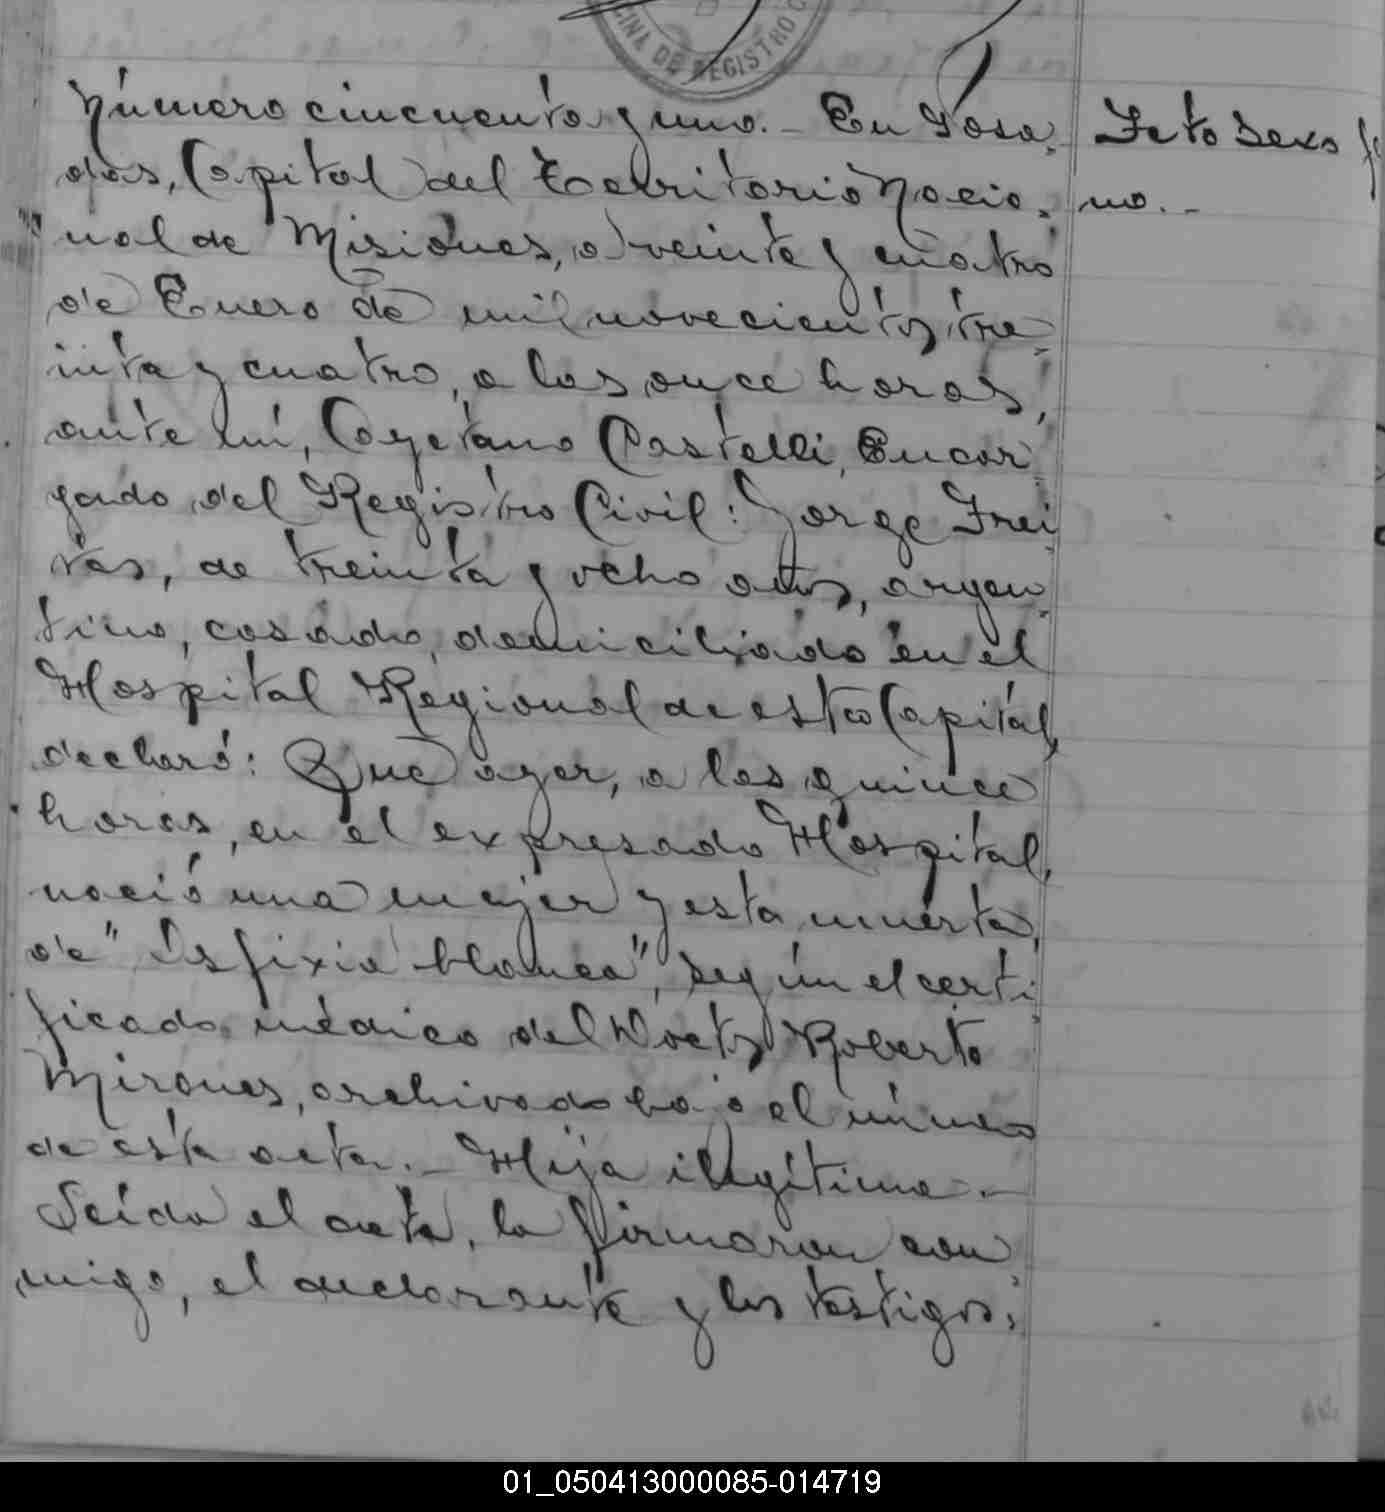 CINA DE REGISTRO C
Número cincuenta y uno.- En Posa-
das, Capital del Territorio Nacio-
nal de Misiones, a veinte y cuatro
de Enero de mil novecientos tre-
inta y cuatro, a las once horas,
ante mí, Cayetano Castelli, Encar-
gado del Registro Civil: Jorge Frei-
tas, de treinta y ocho años, argen-
tino, casado, domiciliado en el
Hospital Regional de esta Capital,
declaró: Que ayer, a las quince
horas, en el expresado Hospital,
nació una mujer y está muerta,
de "Asfixia blanca", según el certi-
ficado médico del Doctor Roberto
Mirones, archivado bajo el número
de esta acta.- Hija ilegítima.-
Leída el acta, la firmaron con-
migo, el declarante y los testigos:
Feto Sexo f
no.-
01_050413000085-014719